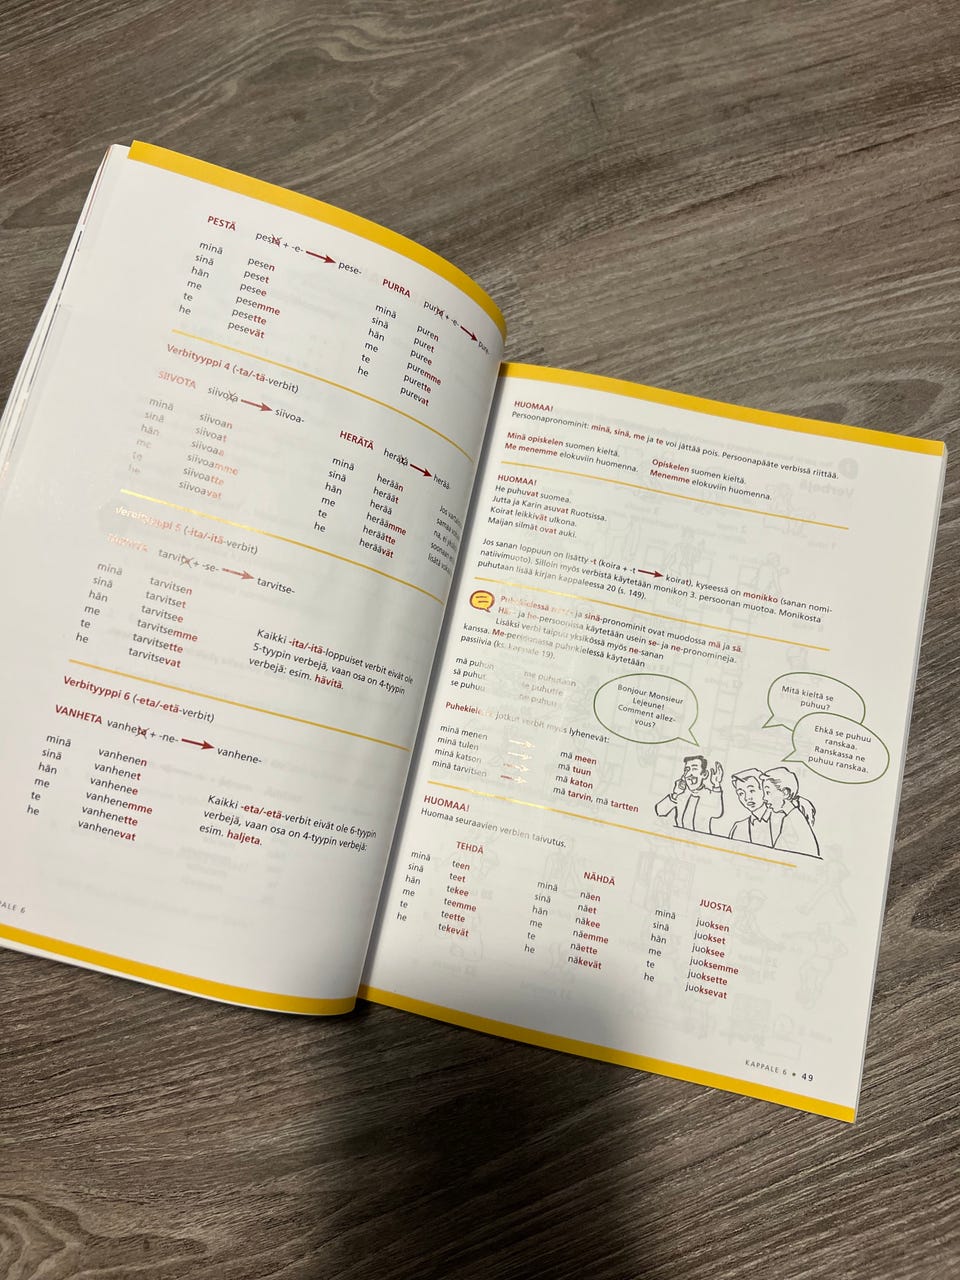 PESTÄ
pestä + -e- → pese-
minä pesen
sinä peset
hän pesee
me pesemme
te pesette
he pesevät
PURRA
purra + -e- → pure-
minä puren
sinä puret
hän puree
me puremme
te purette
he purevat
Verbityyppi 4 (-ta/-tä-verbit)
SIIVOTA
siivota → siivoa-
minä siivoan
sinä siivoat
hän siivoaa
me siivoamme
te siivoatte
he siivoavat
HERÄTÄ
herätä → herää-
minä herään
sinä heräät
hän herää
me heräämme
te heräätte
he heräävät
Jos
samaa
na, ei
soonan
lisätä
Verbityyppi 5 (-ita/-itä-verbit)
tarvita + -se- → tarvitse-
minä tarvitsen
sinä tarvitset
hän tarvitsee
me tarvitsemme
te tarvitsette
he tarvitsevat
Kaikki -ita/-itä-loppuiset verbit eivät ole
5-tyypin verbejä, vaan osa on 4-tyypin
verbejä: esim. hävitä.
Verbityyppi 6 (-eta/-etä-verbit)
VANHETA
vanheta + -ne- → vanhene-
minä vanhenen
sinä vanhenet
hän vanhenee
me vanhenemme
te vanhenette
he vanhenevat
Kaikki -eta/-etä-verbit eivät ole 6-tyypin
verbejä, vaan osa on 4-tyypin verbejä:
esim. haljeta.
PALE 6
HUOMAA!
Persoonapronominit: minä, sinä, me ja te voi jättää pois. Persoonapääte verbissä riittää.
Minä opiskelen suomen kieltä. Opiskelen suomen kieltä.
Me menemme elokuviin huomenna. Menemme elokuviin huomenna.
HUOMAA!
He puhuvat suomea.
Jutta ja Karin asuvat Ruotsissa.
Koirat leikkivät ulkona.
Maijan silmät ovat auki.
Jos sanan loppuun on lisätty -t (koira + -t → koirat), kyseessä on monikko (sanan nomi-
natiivimuoto). Silloin myös verbistä käytetään monikon 3. persoonan muotoa. Monikosta
puhutaan lisää kirjan kappaleessa 20 (s. 149).
Puhekielessä minä- ja sinä-pronominit ovat muodossa mä ja sä.
Hän- ja he-persoonissa käytetään usein se- ja ne-pronomineja.
Lisäksi verbi taipuu yksikössä myös ne-sanan
kanssa. Me-persoonassa puhekielessä käytetään
passiivia (ks. kappale 19).
mä puhun me puhutaan
sä puhut te puhutte
se puhuu ne puhuu
Puhekielessä jotkut verbit myös lyhenevät:
minä menen → mä meen
minä tulen → mä tuun
minä katson → mä katon
minä tarvitsen → mä tarvin, mä tartten
Bonjour Monsieur
Lejeune!
Comment allez-
vous?
Mitä kieltä se
puhuu?
Ehkä se puhuu
ranskaa.
Ranskassa ne
puhuu ranskaa.
HUOMAA!
Huomaa seuraavien verbien taivutus.
TEHDÄ
minä teen
sinä teet
hän tekee
me teemme
te teette
he tekevät
NÄHDÄ
minä näen
sinä näet
hän näkee
me näemme
te näette
he näkevät
JUOSTA
minä juoksen
sinä juokset
hän juoksee
me juoksemme
te juoksette
he juoksevat
KAPPALE 6 • 49